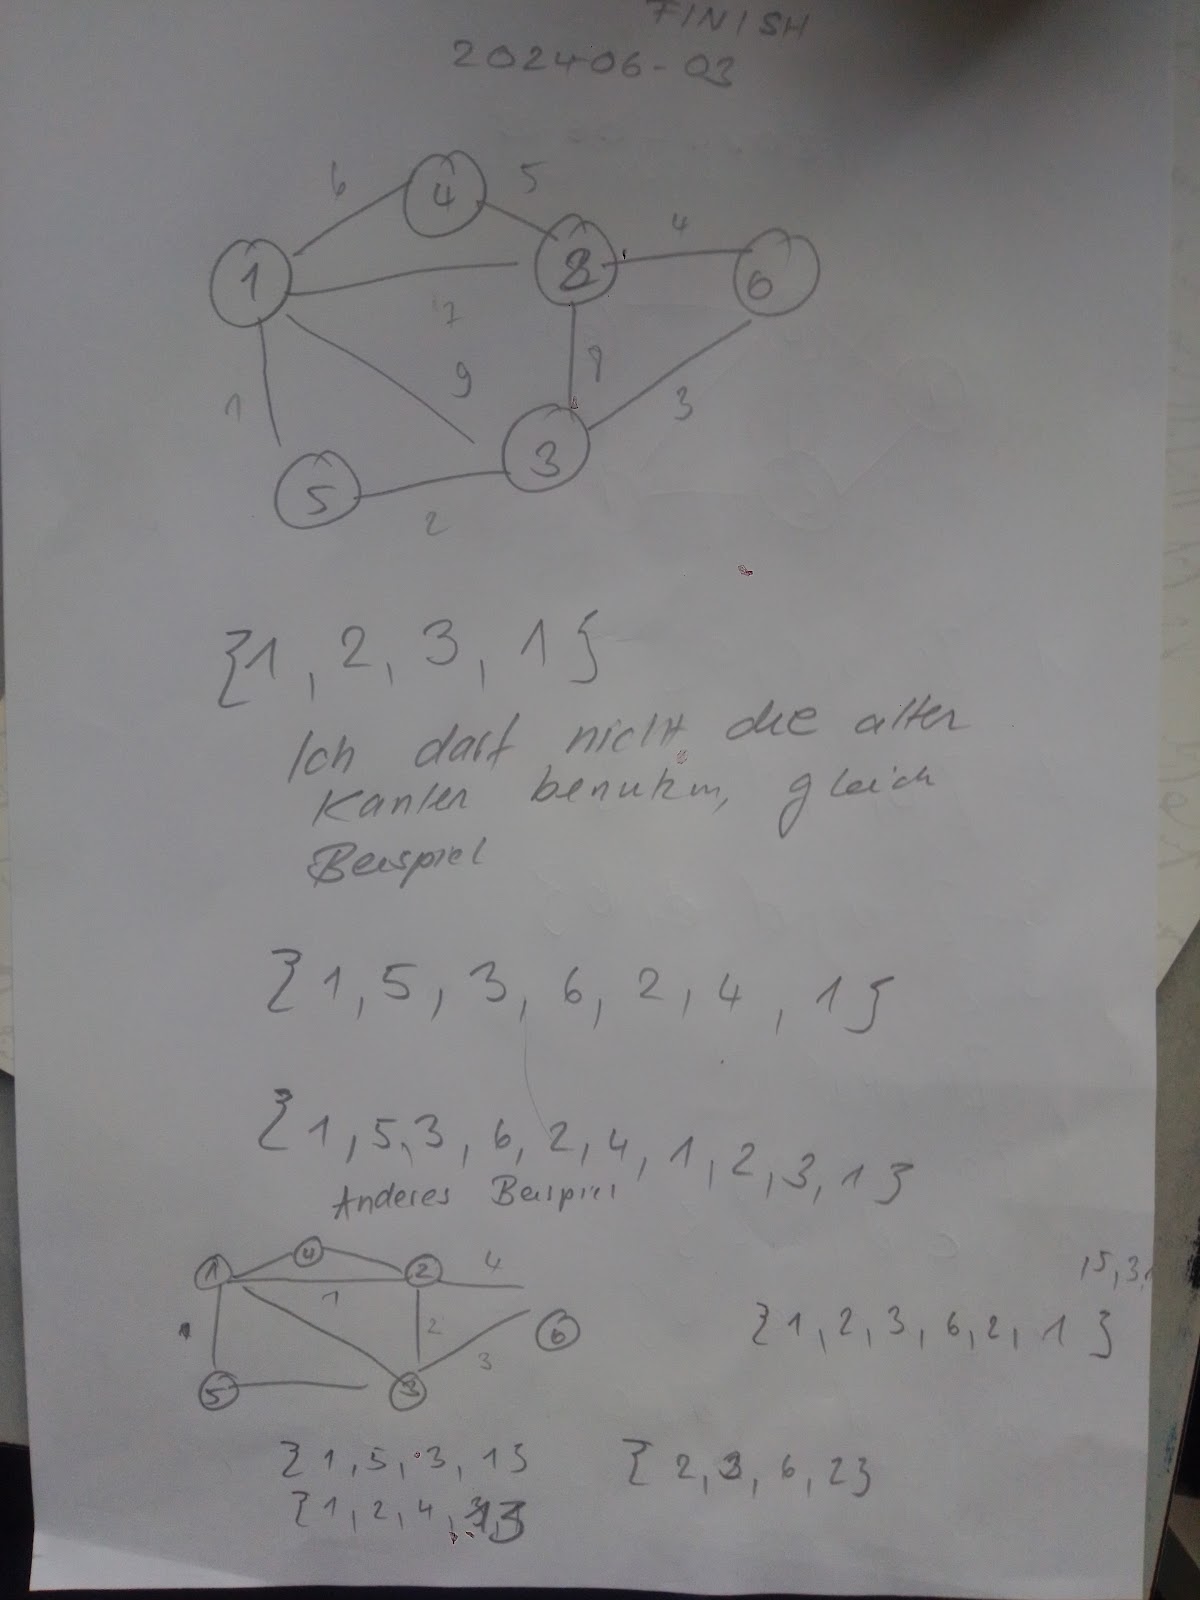 FINISH
202406-03
6
4
5
4
1
8
6
7
9
1
3
3
5
2
{1, 2, 3, 1}
Ich darf nicht die alten
Kanten benutzen, gleich
Beispiel
{1, 5, 3, 6, 2, 4, 1}
{1, 5, 3, 6, 2, 4, 1, 2, 3, 1}
Anderes Beispiel
1
4
2
4
1
2
6
3
5
3
,5,3,
{1, 2, 3, 6, 2, 1}
{1, 5, 3, 1}
{2, 3, 6, 2}
{1, 2, 4,